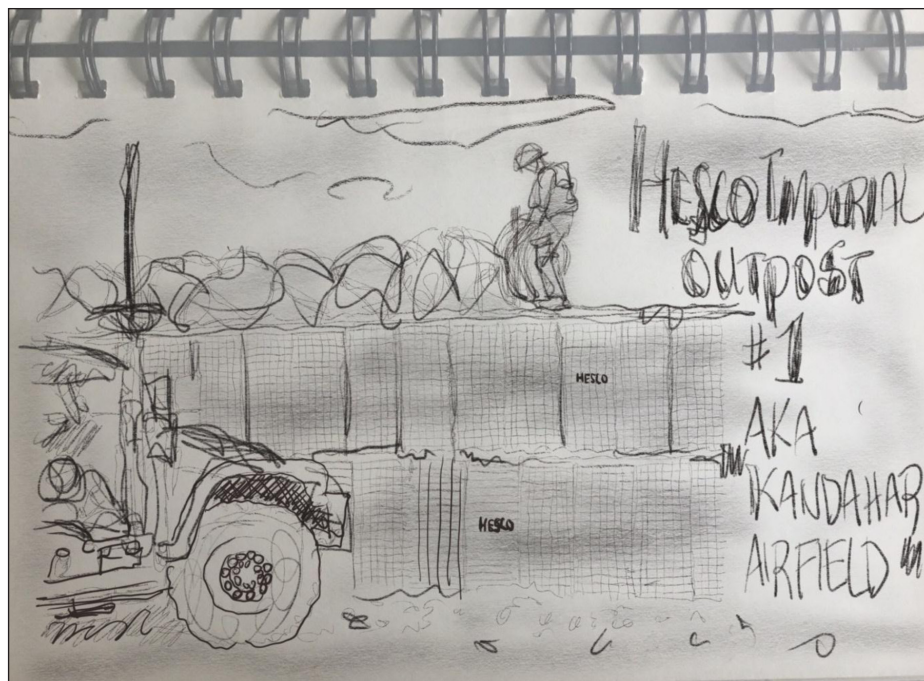 HESCO IMPERIAL
OUTPOST
#1
AKA
"KANDAHAR
AIRFIELD"
HESCO
HESCO